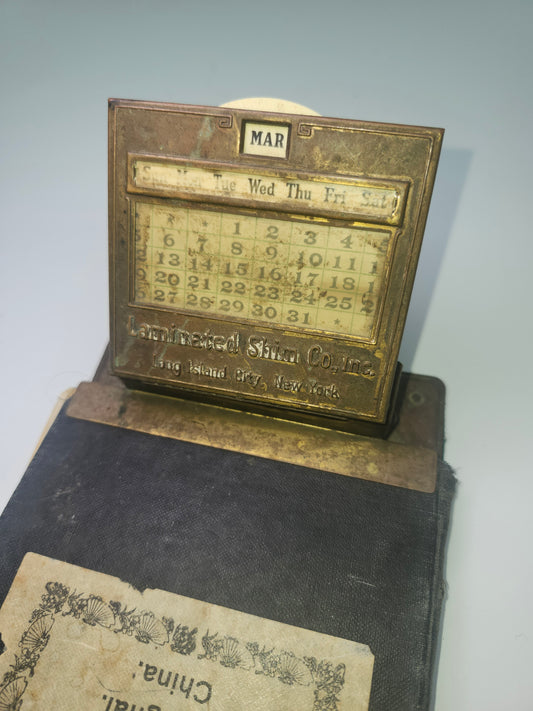 MAR
Sun Mon Tue Wed Thu Fri Sat
1 2 3 4 5
6 7 8 9 10 11
13 14 15 16 17 18
20 21 22 23 24 25
27 28 29 30 31
Laminated Shim Co., Inc.
Long Island City, New York
China.
ghai.